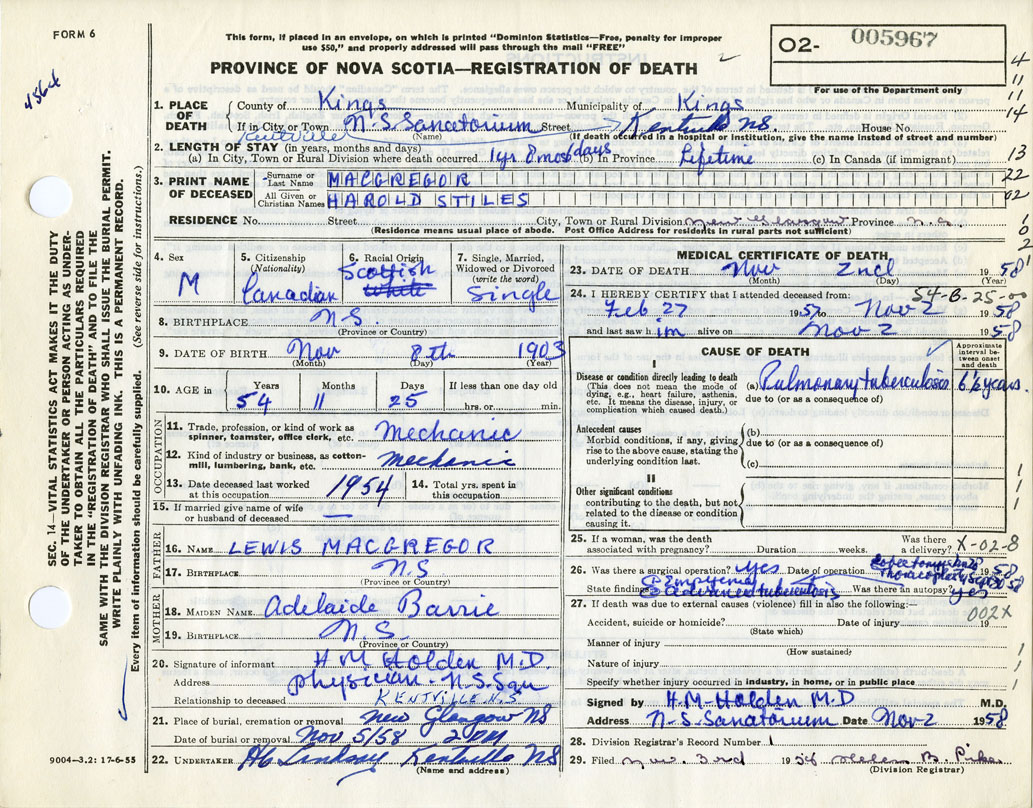 FORM 6
4564
This form, if placed in an envelope, on which is printed "Dominion Statistics—Free, penalty for improper
use $50," and properly addressed will pass through the mail "FREE"
PROVINCE OF NOVA SCOTIA—REGISTRATION OF DEATH
02- 005967
For use of the Department only
1. PLACE OF DEATH
County of Kings Municipality of Kings
If in City or Town N.S. Sanatorium Street Kentville NS. House No.
(Name) (If death occurred in a hospital or institution, give the name instead of street and number)
Kentville
2. LENGTH OF STAY (in years, months and days)
(a) In City, Town or Rural Division where death occurred 1 yr 8 mos 6 days (b) In Province Lifetime (c) In Canada (if immigrant)
3. PRINT NAME OF DECEASED
Surname or Last Name MACGREGOR
All Given or Christian Names HAROLD STILES
RESIDENCE No. Street City, Town or Rural Division New Glasgow Province N.S.
(Residence means usual place of abode. Post Office Address for residents in rural parts not sufficient)
4
11
11
14
13
22
02
0
2
1
4. Sex M
5. Citizenship (Nationality) Canadian
6. Racial Origin Scottish White
7. Single, Married, Widowed or Divorced (write the word) Single
8. BIRTHPLACE N.S.
(Province or Country)
9. DATE OF BIRTH Nov 8th 1903
(Month) (Day) (Year)
10. AGE in Years 54 Months 11 Days 25 If less than one day old hrs. or min.
OCCUPATION
11. Trade, profession, or kind of work as spinner, teamster, office clerk, etc. Mechanic
12. Kind of industry or business, as cotton-mill, lumbering, bank, etc. mechanic
13. Date deceased last worked at this occupation 1954
14. Total yrs. spent in this occupation
15. If married give name of wife or husband of deceased —
FATHER
16. NAME LEWIS MACGREGOR
17. BIRTHPLACE N.S
(Province or Country)
MOTHER
18. MAIDEN NAME Adelaide Barrie
19. BIRTHPLACE N.S.
(Province or Country)
20. Signature of informant H M Holden M.D.
Address physician - N.S. San
Relationship to deceased KENTVILLE N.S
21. Place of burial, cremation or removal New Glasgow NS
Date of burial or removal Nov 5/58 2 PM
22. UNDERTAKER Lindsay Kentville NS
(Name and address)
MEDICAL CERTIFICATE OF DEATH
23. DATE OF DEATH Nov 2nd 1958
(Month) (Day) (Year)
54-B-25-00
24. I HEREBY CERTIFY that I attended deceased from:
Feb 27 1957 to Nov 2 1958
and last saw him alive on Nov 2 1958
CAUSE OF DEATH
Approximate interval between onset and death
I
Disease or condition directly leading to death
(This does not mean the mode of dying, e.g., heart failure, asthenia, etc. It means the disease, injury, or complication which caused death.)
(a) Pulmonary tuberculosis 6½ years
due to (or as a consequence of)
Antecedent causes
Morbid conditions, if any, giving rise to the above cause, stating the underlying condition last.
(b)
due to (or as a consequence of)
(c)
II
Other significant conditions
contributing to the death, but not related to the disease or condition causing it.
1
1
1
1
25. If a woman, was the death associated with pregnancy? Duration weeks. Was there a delivery? X-02-8
26. Was there a surgical operation? yes Date of operation Thoracoplasty 1958
State findings Empyema
advanced tuberculosis Was there an autopsy? yes
27. If death was due to external causes (violence) fill in also the following:— 002X
Accident, suicide or homicide? Date of injury 19
(State which)
Manner of injury
(How sustained)
Nature of injury
Specify whether injury occurred in industry, in home, or in public place
1
1
1
Signed by H.M. Holden M.D M.D.
Address N.S. Sanatorium Date Nov 2 1958
28. Division Registrar's Record Number 1
29. Filed Nov. 3rd 19 Helen B.
(Division Registrar)
SEC. 14—VITAL STATISTICS ACT MAKES IT THE DUTY
OF THE UNDERTAKER OR PERSON ACTING AS UNDER-
TAKER TO OBTAIN ALL THE PARTICULARS REQUIRED
IN THE "REGISTRATION OF DEATH" AND TO FILE THE
SAME WITH THE DIVISION REGISTRAR WHO SHALL ISSUE THE BURIAL PERMIT.
WRITE PLAINLY WITH UNFADING INK. THIS IS A PERMANENT RECORD.
Every item of information should be carefully supplied. (See reverse side for instructions.)
9004—3.2: 17-6-55